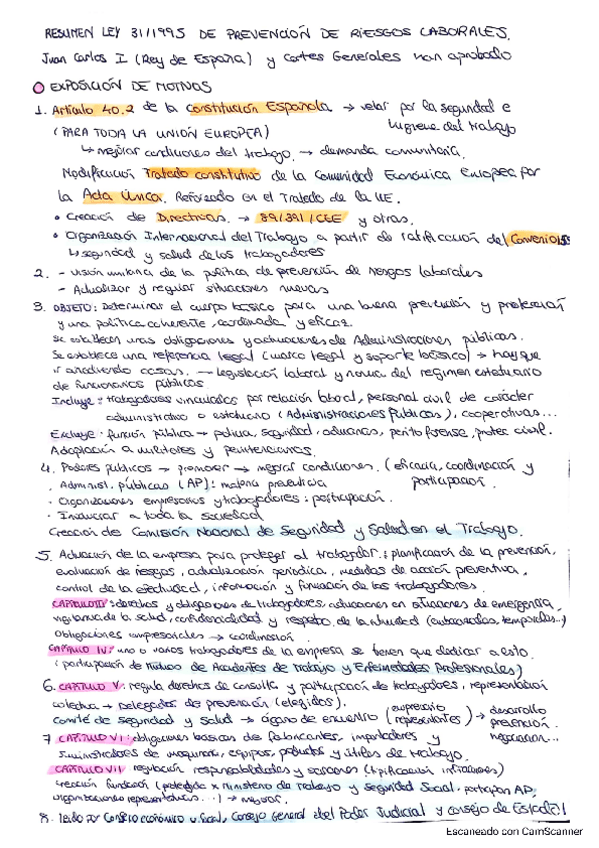 RESUMEN LEY 31/1995 DE PREVENCIÓN DE RIESGOS LABORALES.
Juan Carlos I (Rey de España) y Cortes Generales han aprobado
EXPOSICIÓN DE MOTIVOS
1. Artículo 40.2 de la Constitución Española → velar por la seguridad e
(PARA TODA LA UNIÓN EUROPEA) higiene del trabajo
↳ mejorar condiciones del trabajo → demanda comunitaria.
Modificación Tratado constitutivo de la Comunidad Económica Europea por
la Acta Única. Reforzado en el Tratado de la UE.
• Creación de Directivas → 89/391/CEE y otras.
• Organización Internacional del Trabajo a partir de ratificación del Convenio 155
↳ seguridad y salud de los trabajadores
2. - visión unitaria de la política de prevención de riesgos laborales
- Actualizar y regular situaciones nuevas
3. OBJETO: Determinar el cuerpo básico para una buena prevención y protección
y una política coherente, coordinada y eficaz.
se establecen unas obligaciones y actuaciones de Administraciones públicas.
Se establece una referencia legal (marco legal y soporte básico) → hay que
ir anadiendo cosas. — legislación laboral y norma del regimen estatutario
de funcionarios públicos
Incluye: trabajadores vinculados por relación laboral, personal civil de carácter
administrativo o estatutario (Administraciones Públicas), cooperativas...
Excluye: función pública → policía, seguridad, aduanas, perito forense, protec civil.
Adaptación a militares y penitenciarios.
4. Poderes públicos → promover → mejorar condiciones. (eficacia, coordinación y
participación.
• Administ. públicas (AP): materia preventiva
• Organizaciones empresarios y trabajadores: participación.
• Involucrar a toda la sociedad
Creación de Comisión Nacional de Seguridad y Salud en el Trabajo.
5. Actuación de la empresa para proteger al trabajador: planificación de la prevención,
evaluación de riesgos, actualización periódica, medidas de acción preventiva,
control de la efectividad, información y formación de los trabajadores.
CAPITULO III: derechos y obligaciones de trabajadores, actuaciones en situaciones de emergencia,
vigilancia de la salud, confidencialidad y respeto de la intimidad (embarazadas, temporales..)
Obligaciones empresariales → coordinación.
CAPITULO IV: uno o varios trabajadores de la empresa se tienen que dedicar a esto.
(participación de Mutuas de Accidentes de Trabajo y Enfermedades Profesionales)
6. CAPITULO V: regula derechos de consulta y participación de trabajadores, representación
colectiva → Delegados de prevención (elegidos).
Comité de seguridad y salud → órgano de encuentro (empresario representantes) → desarrollo
prevención. negociación...
7 CAPITULO VI: obligaciones básicas de fabricantes, importadores y
suministradores de maquinaria, equipos, productos y útiles de trabajo.
CAPITULO VII: regulación responsabilidades y sanciones (tipificación infracciones)
creación fundación (protegida x ministerio de trabajo y Seguridad Social, participan AP,
organizaciones representativas...) → mejorar.
8. leído por Consejo económico y Social, Consejo General del Poder Judicial y consejo de Estado!
Escaneado con CamScanner